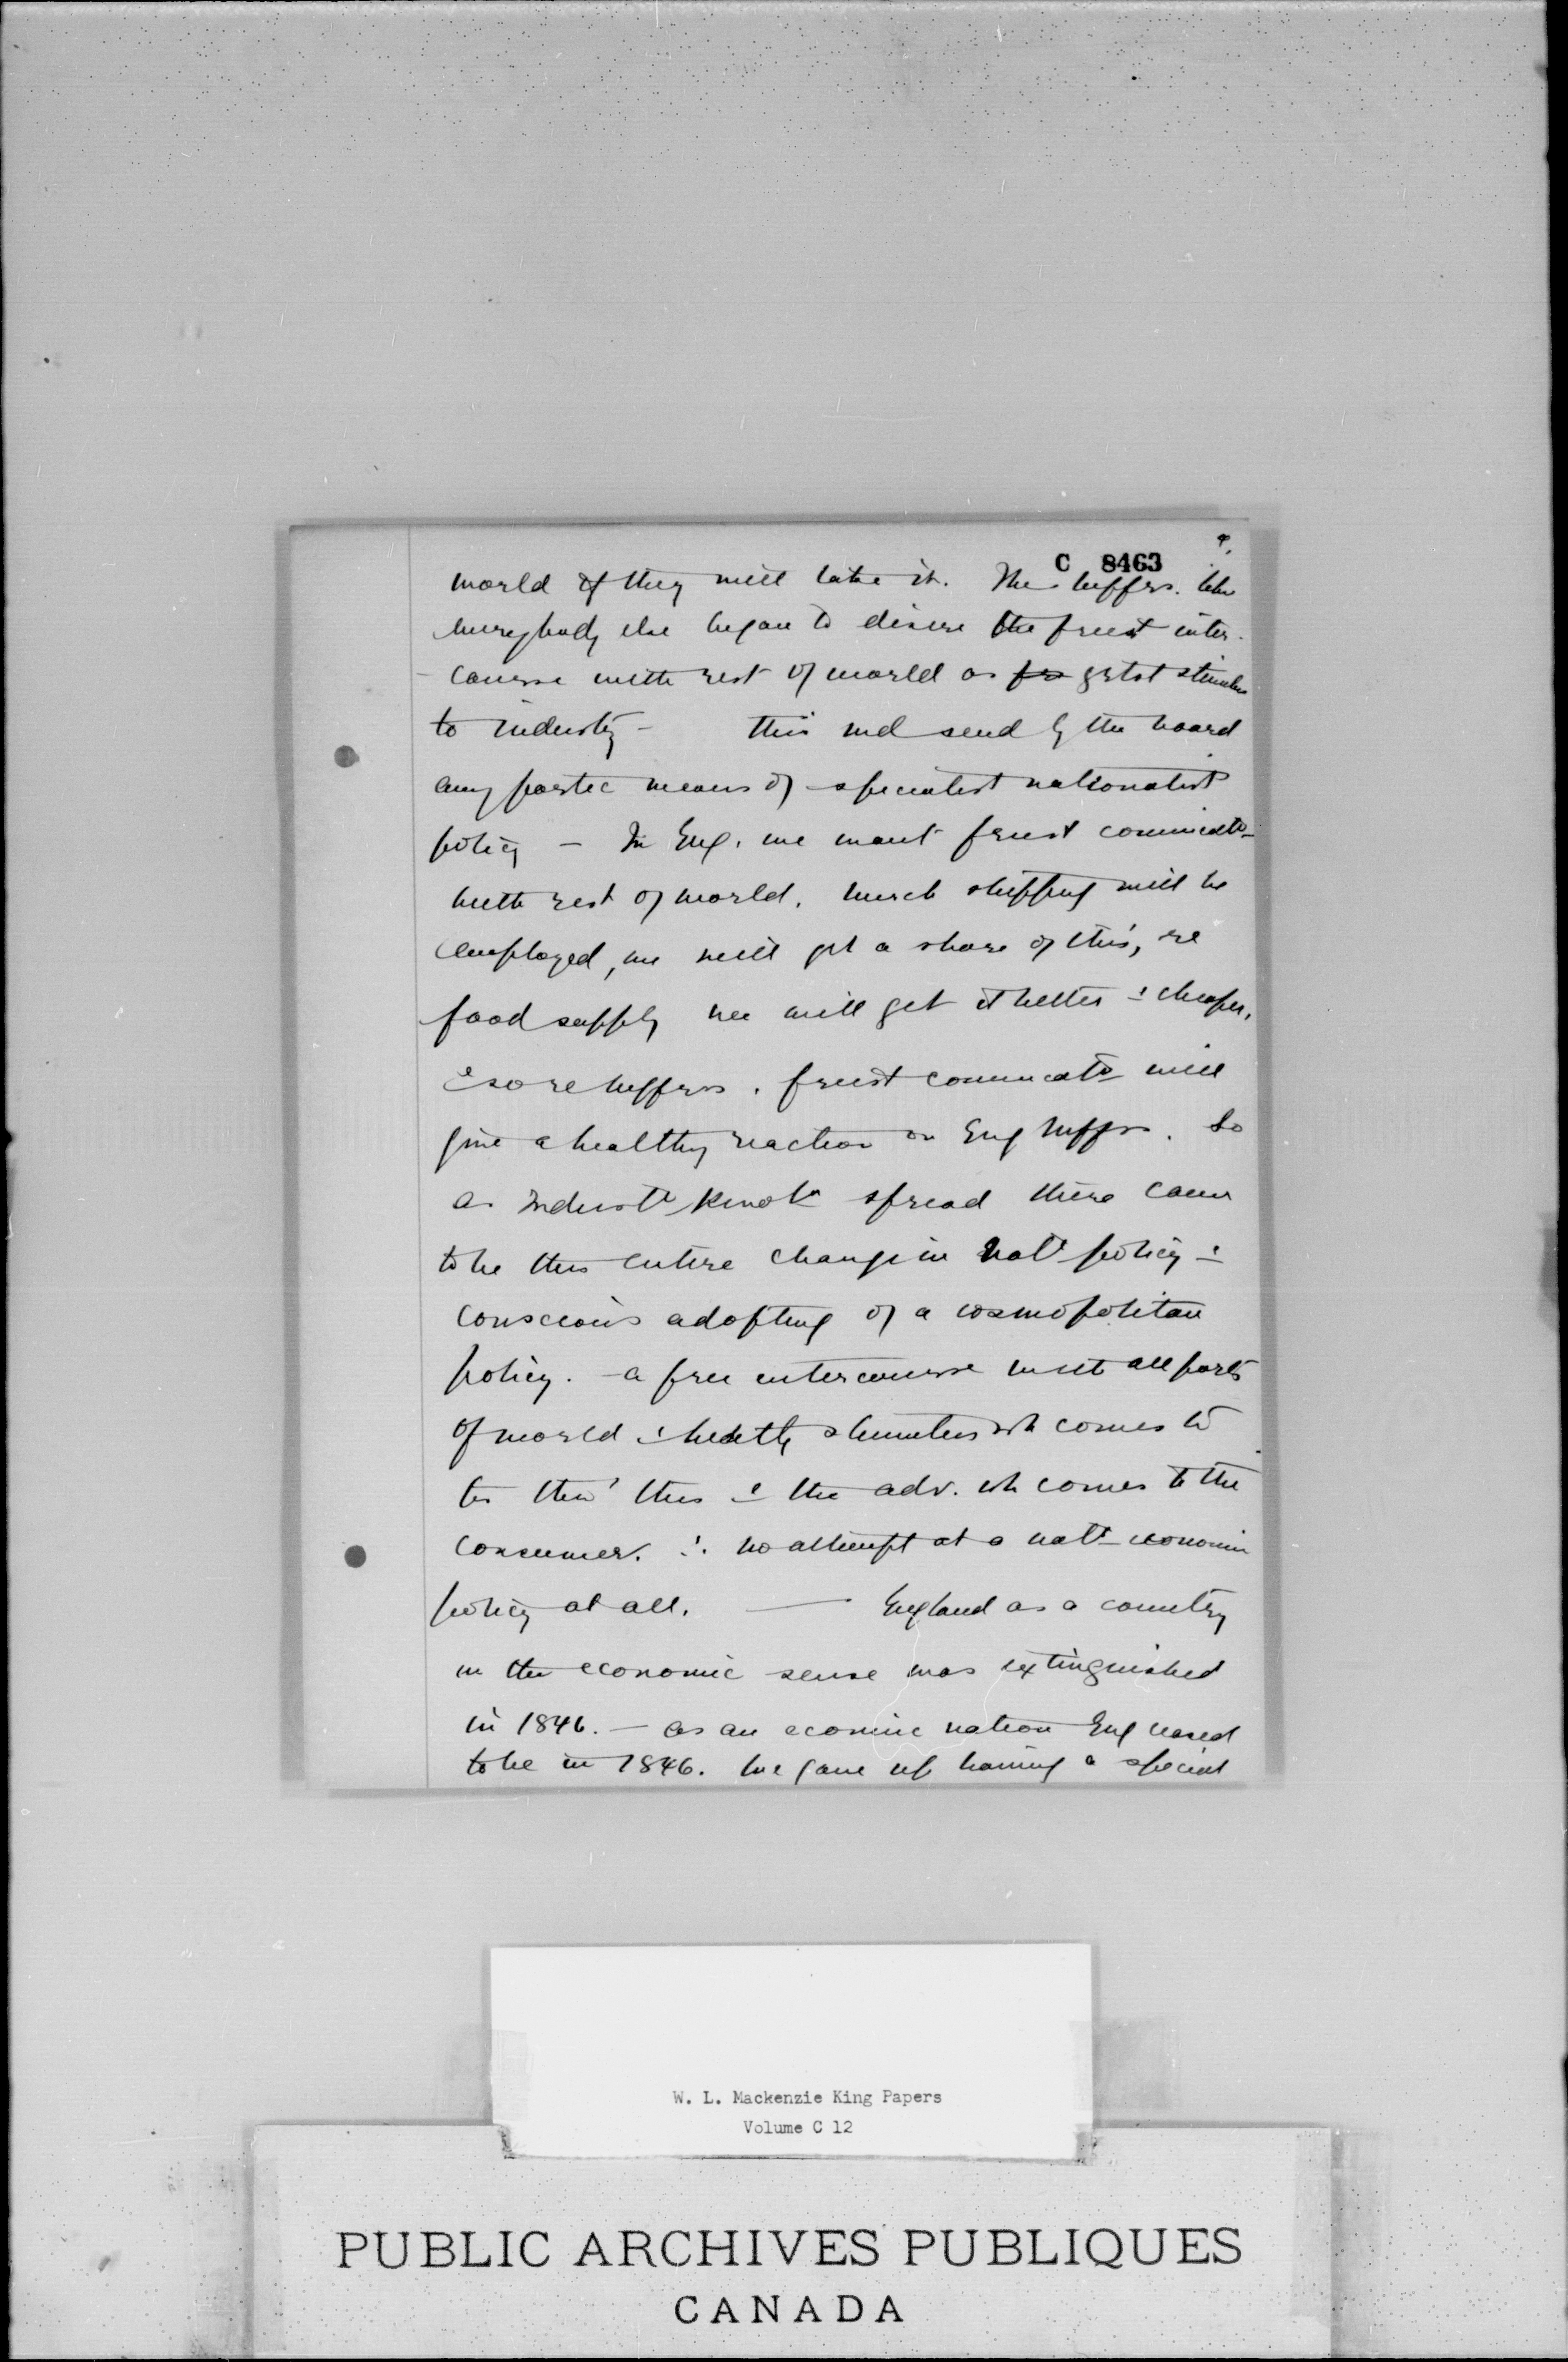 C 8463
world if they will take it. The mffrs. like
everybody else began to desire the freest inter-
course with rest of world as grtst stimulus
to industry - this wd send by the board
any partic means of specialist nationalist
policy - In Eng. we want freest communicatn
with rest of world. much shipping will be
employed, we will get a share of this, re
food supply we will get it better & cheaper.
& so re mffrs. freest communicatn will
give a healthy reaction on Eng mffrs. So
as Industl Revoltn spread there came
to be this entire change in natl policy &
conscious adopting of a cosmopolitan
policy. - a free intercourse with all parts
of world & healthy stimulus wh comes to
us thro' this & the adv. wh comes to the
consumer. ∴ no attempt at a natl economic
policy at all. — England as a country
in the economic sense was extinguished
in 1846. - as an ecomic nation Eng ceased
to be in 1846. We gave up having a special
W. L. Mackenzie King Papers
Volume C 12
PUBLIC ARCHIVES PUBLIQUES
CANADA